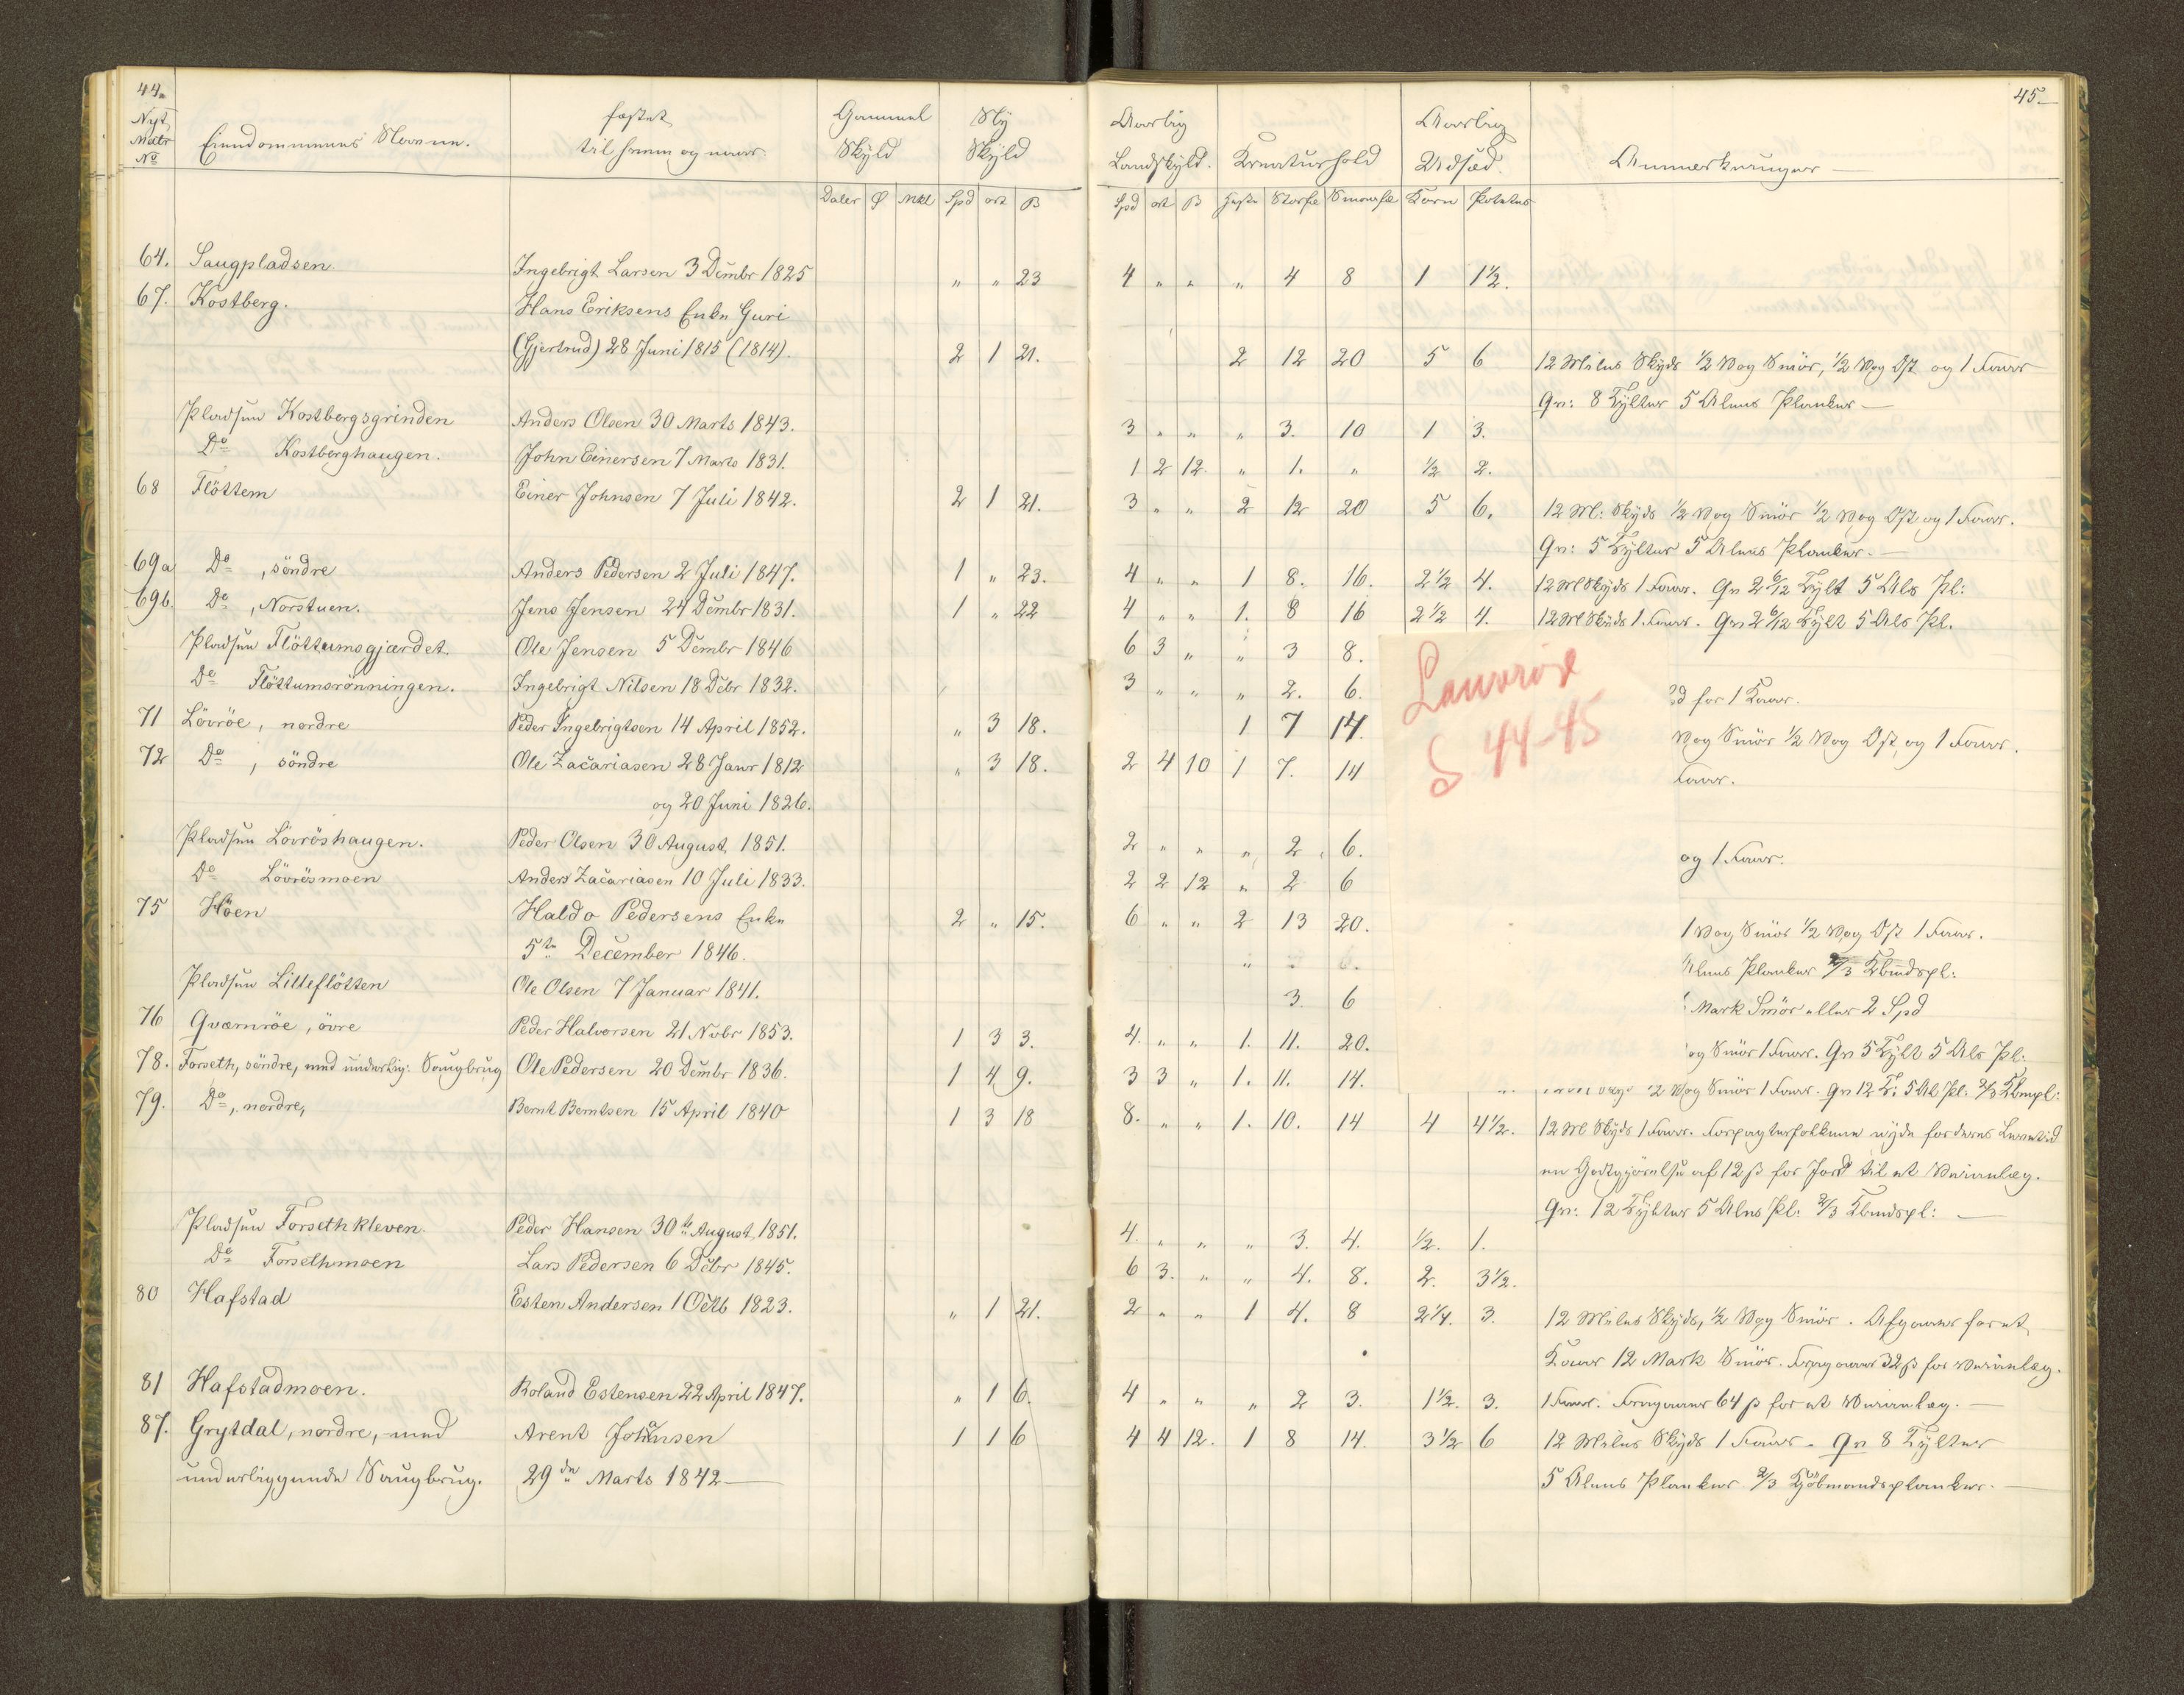 44.
Nyt Matr No
Eiendommenes Navne.
fæstet til hvem og naar.
Gammel Skyld
Ny Skyld
Daler Ø Mkl Spd ort ß
64. Saugpladsen Ingebrigt Larsen 3 Dcmbr 1825 " " 23
67. Kostberg. Hans Eriksens Enke Guri
(Gjertrud) 28 Juni 1815 (1814). 2 1 21.
Pladsen Kostbergsgrinden Anders Olsen 30 Marts 1843.
Do Kostberghaugen. John Einersen 7 Marts 1831.
68 Flöttem Einer Johnsen 7 Juli 1842. 2 1 21.
69a Do , söndre Anders Pedersen 2 Juli 1847. 1 " 23.
69b. Do , Norstuen. Jens Jensen 24 Dcmbr 1831. 1 " 22
Pladsen Flöttumsgjærdet. Ole Jensen 5 Dcmbr 1846
Do Flöttumsrönningen. Ingebrigt Nilsen 18 Dcbr 1832.
71 Lövröe, nordre Peder Ingebrigtsen 14 April 1852. " 3 18.
72 Do , söndre Ole Zacariasen 28 Janr 1812 " 3 18.
og 20 Juni 1826.
Pladsen Lövröshaugen. Peder Olsen 30 August 1851.
Do Lövrösmoen Anders Zacariasen 10 Juli 1833.
75 Höen Haldo Pedersens Enke 2 " 15.
5te December 1846.
Pladsen Lilleflötten Ole Olsen 7 Januar 1841.
76 Qværnröe, övre Peder Halvorsen 21 Nvbr 1853. 1 3 3.
78. Forseth, söndre, med underlig: Saugbrug Ole Pedersen 20 Dcmbr 1836. 1 4 9.
79. Do, nordre, Bernt Berntsen 15 April 1840 1 3 18
Pladsen Forsethkleven. Peder Hansen 30te August 1851.
Do Forsethmoen Lars Pedersen 6 Dcbr 1845.
80 Hafstad Esten Andersen 1 Octb 1823. " 1 21.
81 Hafstadmoen. Roland Estensen 22 April 1847. " 1 6.
87. Grytdal, nordre, med Arent Johnsen 1 1 6
underliggende Saugbrug. 29de Marts 1842
45.
Aarlig Landskyld.
Kreaturhold
Aarlig Udsæd.
Anmærkninger
Spd ort ß Heste Storfæ Smaafæ Korn Potetes
4 " " " 4 8 1 1½.
2 12 20 5 6 12 Miles Skyds ½ Vog Smör, ½ Vog Ost og 1 Faar
Gr: 8 Tylter 5 Alens Planker
3 " " " 3. 10 1 3.
1 2 12. " 1. " ½ 2.
3 " " 2 12 20 5 6. 12 Ml: Skyds ½ Vog Smör ½ Vog Ost og 1 Faar.
Gr: 5 Tylter 5 Alens Planker.
4 " " 1 8. 16. 2½ 4. 12 Ml Skyds 1 Faar. Gr 2 6/12 Tylt 5 Als Pl:
4 " " 1. 8 16 2½ 4. 12 Ml Skyds 1. Faar. Gr 2 6/12 Tylt 5 Als Pl.
6 3 " " 3 8.
3 " " " 2. 6. for 1 Faar.
1 7 14. Vog Smör ½ Vog Ost, og 1 Faar.
2 4 10 1 7. 14 Faar.
Lauvröe
S 44-45
2 " " " 2 6. og 1 Faar.
2 2 12 " 2 6
6 " " 2 13 20. 1 Vog Smör ½ Vog Ost 1 Faar.
Planker 2/3 Kbmdspl:
3. 6 Mark Smör eller 2 Spd
4. " " 1. 11. 20. og Smör 1 Faar. Gr 5 Tylt 5 Als Pl:
3 3 " 1. 11. 14. Vog Smör 1 Faar. Gr 12 T: 5 Al Pl: 2/3 Kbmpl:
8. " " 1. 10. 14 4 4½. 12 Ml Skyds 1 Faar. Forpagterfolkene nyde for deres Levetid
en Godtgjörelse af 12 ß for Jord til et Veianlæg.
Gr: 12 Tylter 5 Alns Pl: 2/3 Kbmdspl:
4. " " " 3. 4. ½. 1.
6 3. " " 4. 8. 2. 3½.
2 " " 1 4. 8 2¼. 3. 12 Miles Skyds, ½ Vog Smör. Afgaaer for et
Faar 12 Mark Smör. Fragaaer 32 ß for Veianlæg.
4 " " " 2 3. 1½. 3. 1 Faar. Fragaaer 64 ß for et Veianlæg.
4 4 12. 1 8 14. 3½ 6 12 Miles Skyds 1 Faar. Gr 8 Tylter
5 Alens Planker 2/3 Kjöbmandsplanker.